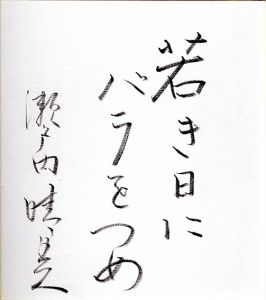 若き日に
バラをつめ
瀬戸内晴美